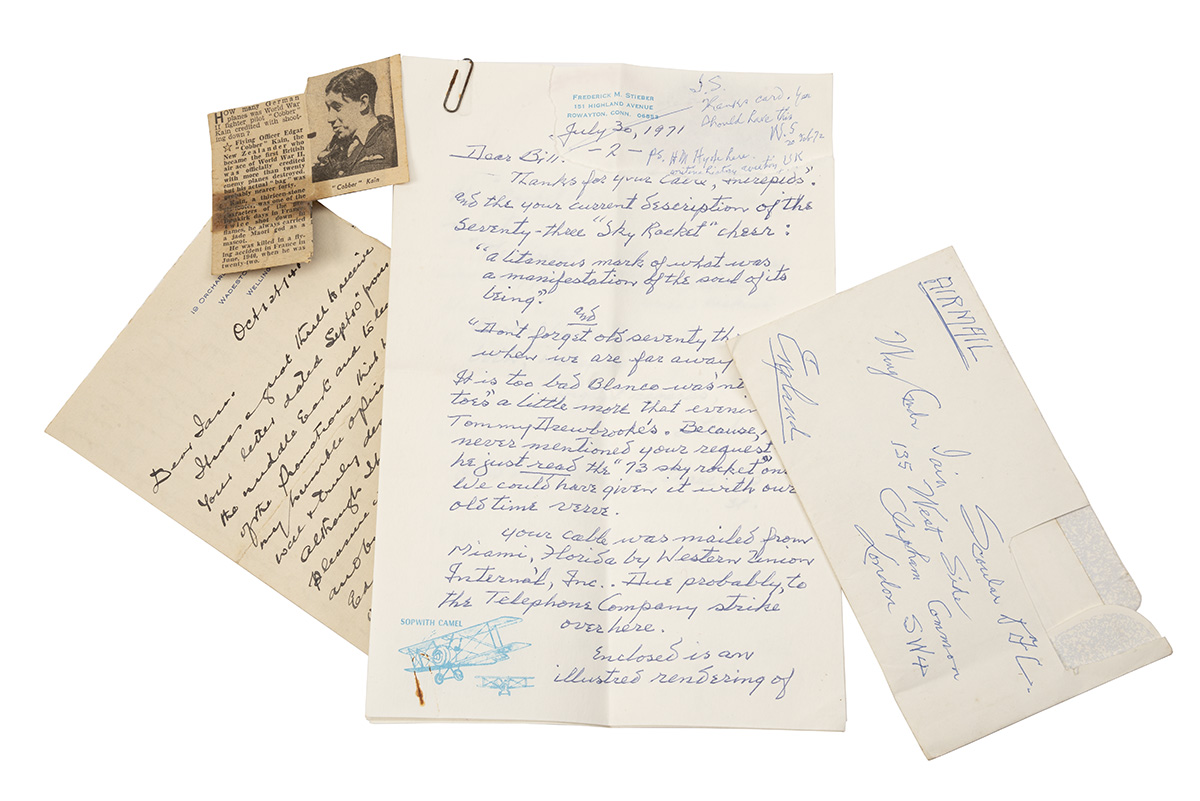 HOW many German
planes was World War
II fighter pilot "Cobber"
Kain credited with shoot-
ing down?
☆ Flying Officer Edgar
"Cobber" Kain, the
New Zealander who
became the first British
air ace of World War II,
was officially credited
with more than twenty
enemy planes destroyed,
but his actual "bag" was
probably nearer forty.
Kain, a thirteen-stone
was one of the
characters of the
days in France.
twice shot down in
flames, he always carried
a jade Maori god as a
mascot.
He was killed in a fly-
ing accident in France in
June, 1940, when he was
twenty-two.
"Cobber" Kain
19 ORCHAR
WADESTO
WELLING
Oct 12/41
Dear Iain.
It was a great thrill to receive
your letter dated Sept 10
the middle East and to
of the promotions
my humble opinion
well & truly
although
pleasure
FREDERICK M. STIEBER
151 HIGHLAND AVENUE
ROWAYTON, CONN. 06853
I.S.
Thanks card. You
should have this
W.S
July 30, 1971
Dear Bill. -2-
PS. H.M Hyde
UK
Thanks for your "intrepids".
and the your current description of the
Seventy-three "Sky Rocket" cheer:
"a litaneous mark of what was
a manifestation of the soul of its
being".
and
"Don't forget old seventy th
when we are far away
It is too bad Blanco wasn't
toes" a little more that evenin
Tommy Drewbrooke's. Because,
never mentioned your request
he just read the "73 sky rocket" on
We could have given it with our
old time verve.
your cable was mailed from
Miami, Florida by Western Union
Internat'l, Inc.. Due probably, to
the Telephone Company strike
over here.
Enclosed is an
illustred rendering of
SOPWITH CAMEL
AIRMAIL
Wing Cmdr Iain Soular DFC.
135 West Side
Clapham Common
London SW4
England